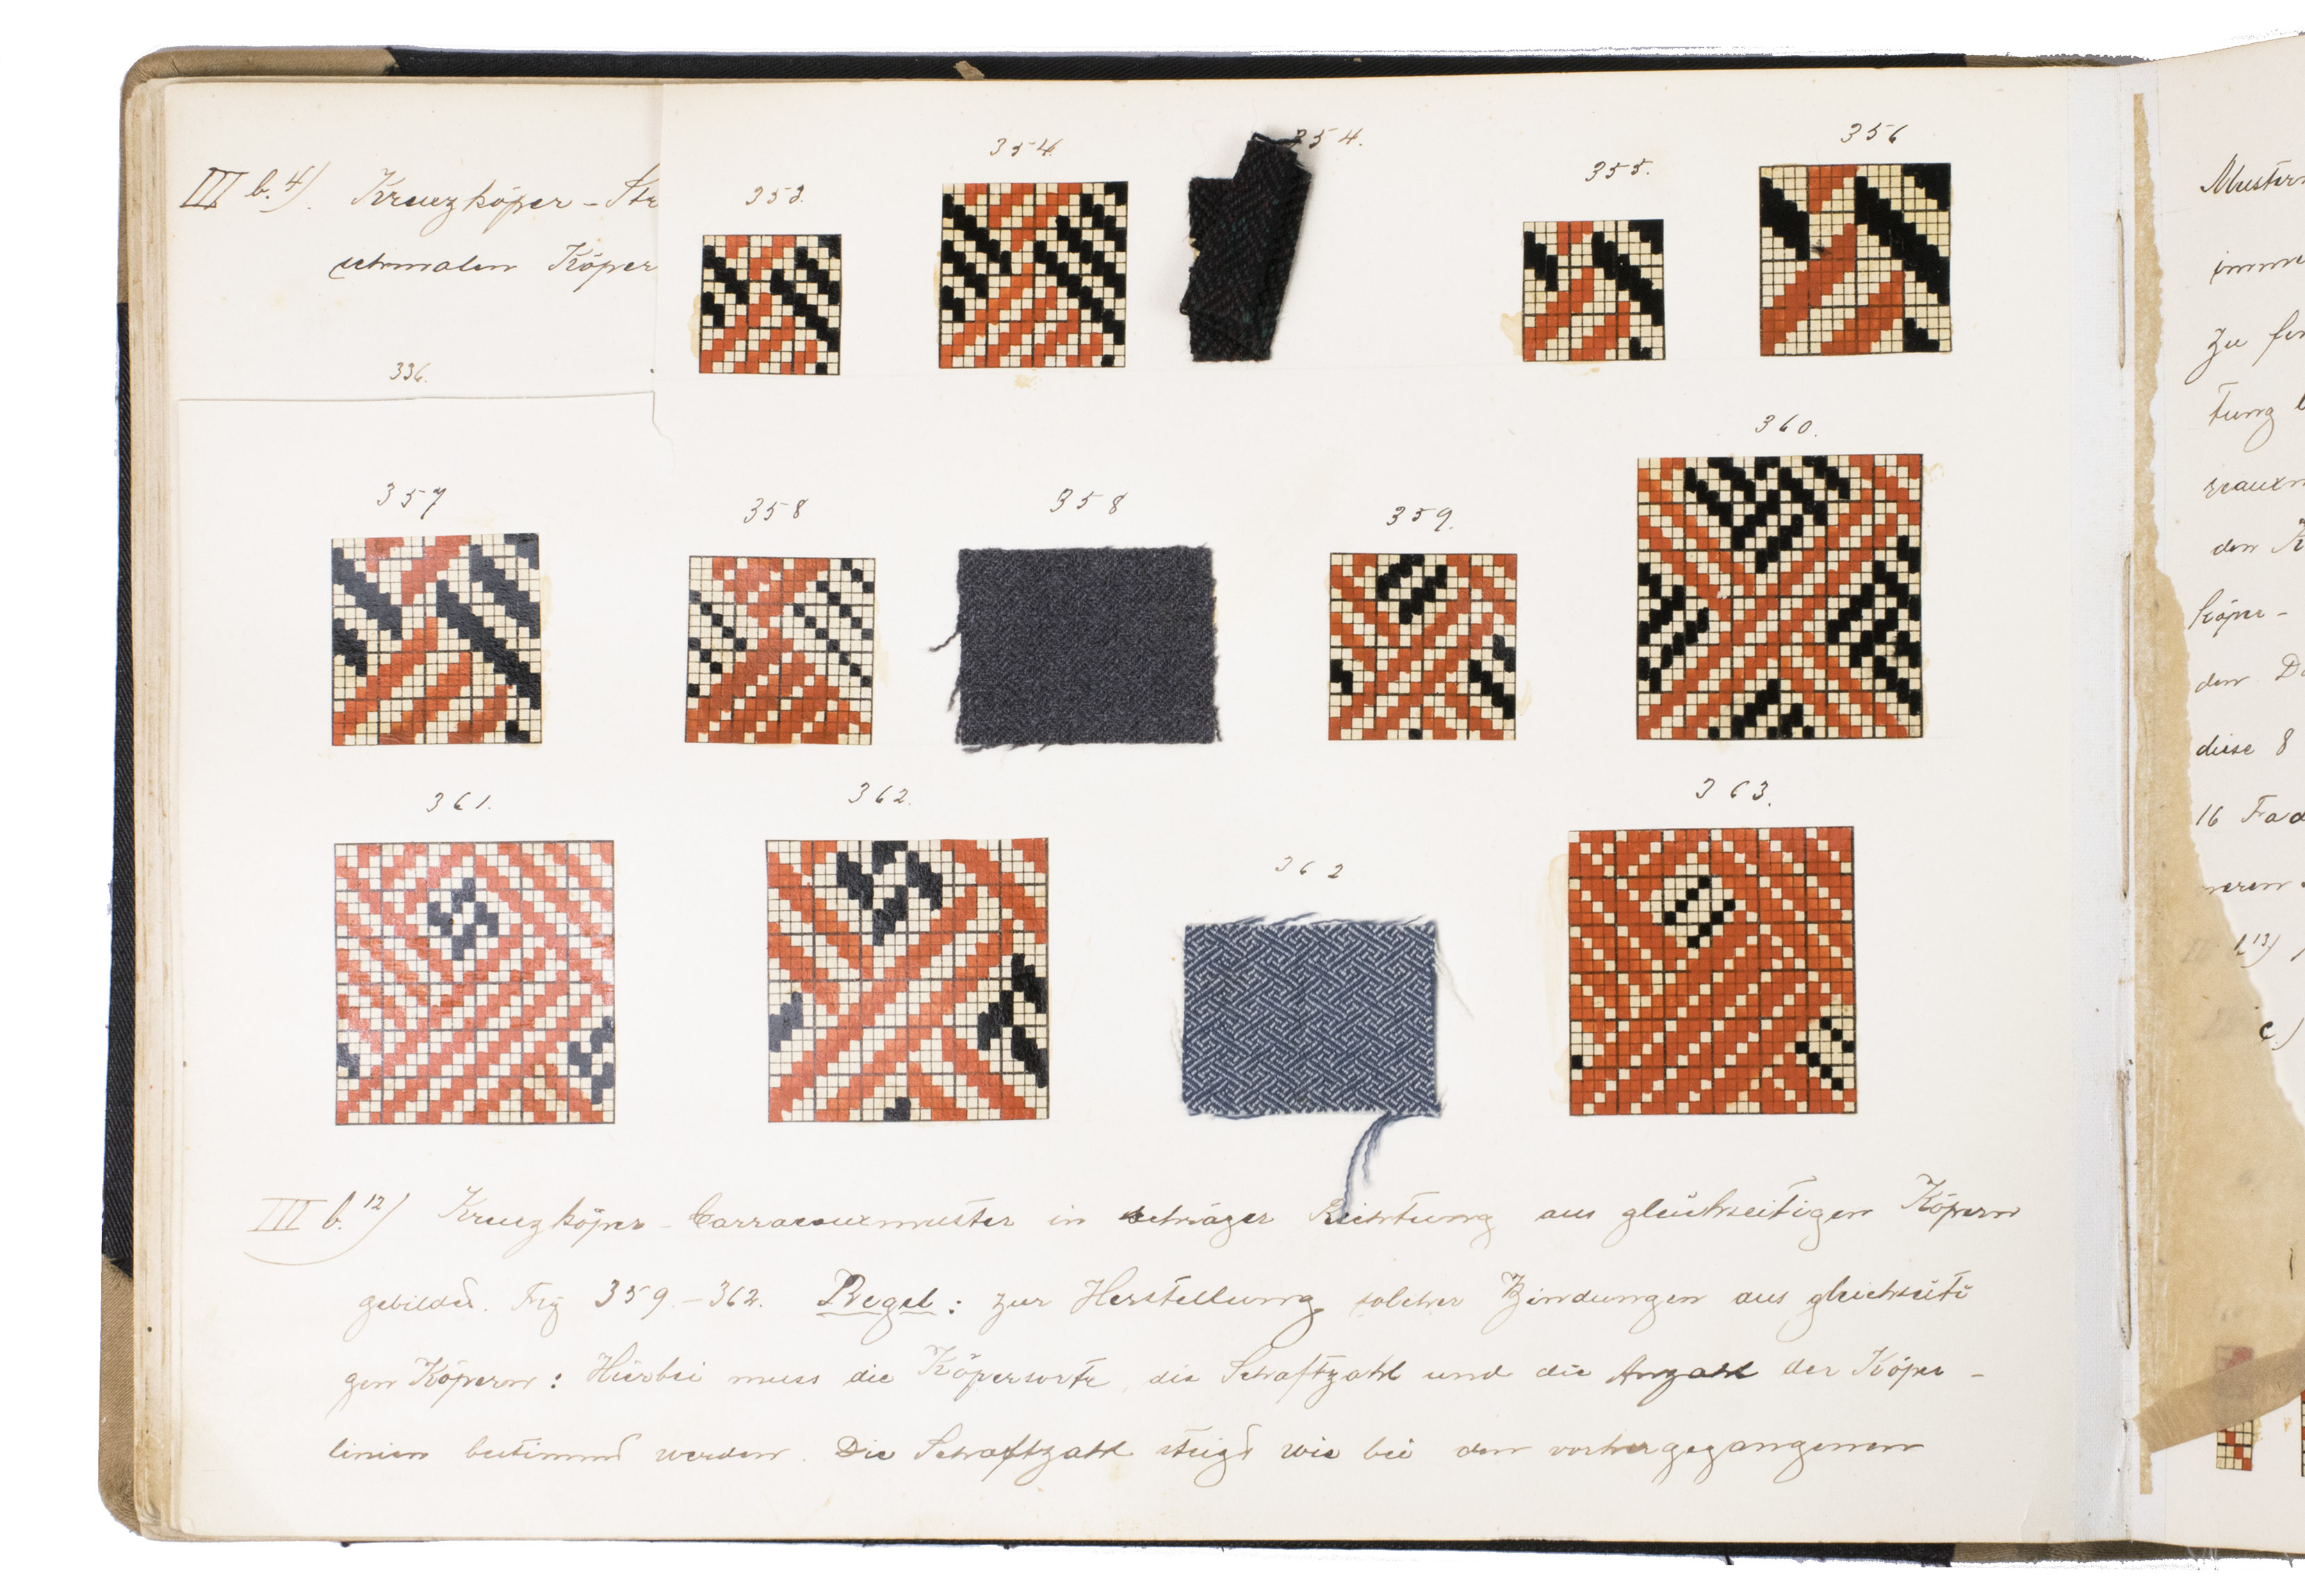 III b. 4) Kreuzköper - Str
schmalen Köper
336.
353.
354.
354.
355.
356
357
358
358
359.
360.
361.
362.
362
363.
III b. 12) Kreuzköper - Carreauxmuster in schräger Richtung aus gleichseitigen Köpern
gebildet. Fig 359.-362. Regel: zur Herstellung solcher Bindungen aus gleichseiti
gen Köpern: Hierbei muss die Köpersorte, die Schaftzahl und die Anzahl der Köper -
linien bestimmt werden. Die Schaftzahl steigt wie bei den vorhergegangenen
Muster
imme
zu
tung
reauxm
den K
köper -
den
diese 8
16 Fad
13)
c.)